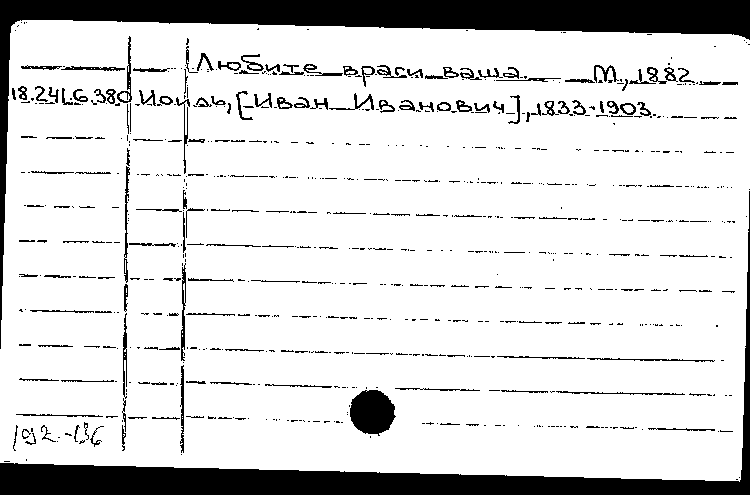 Любите враги ваша. М., 1882
18.241.6.380 Иоиль, [Иван Иванович], 1833-1903.
192-136